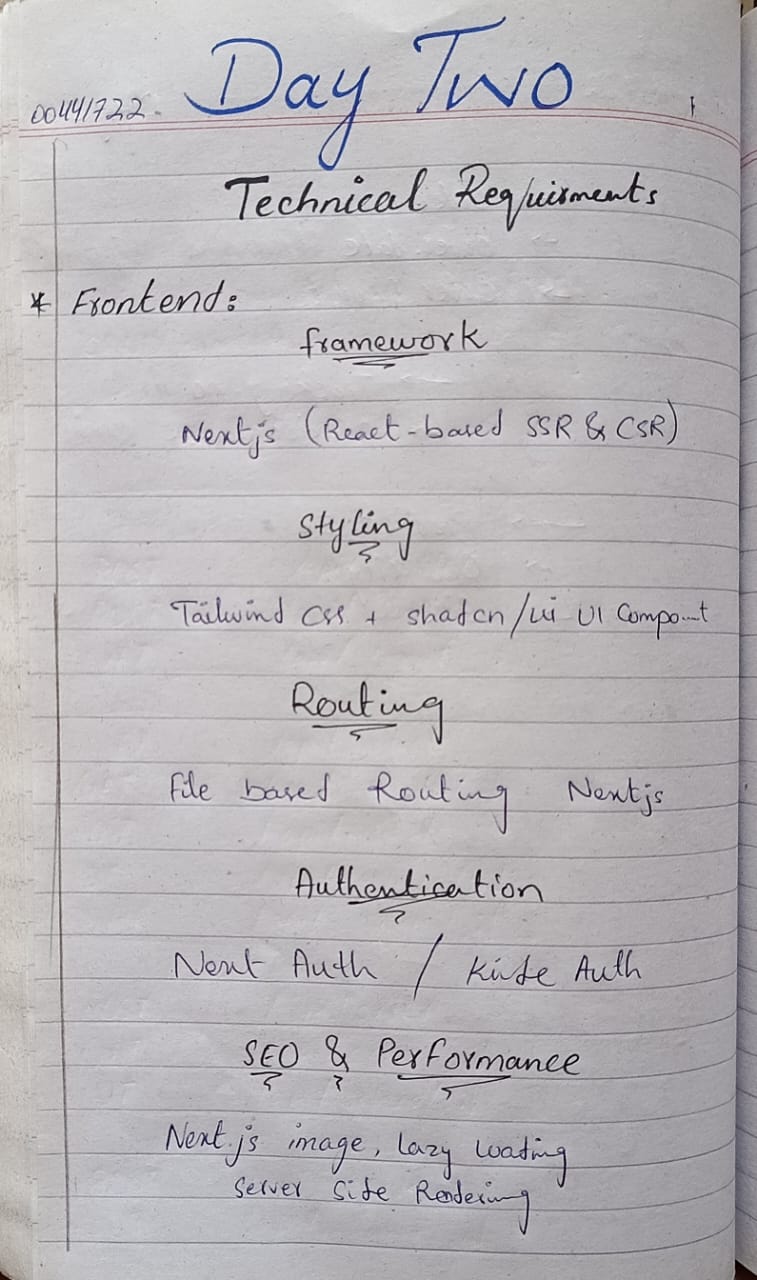 Day Two
00441722
1
Technical Requirments
* Frontend:
framework
Nextjs (React-based SSR & CSR)
Styling
Tailwind css + shadcn/ui UI Component
Routing
File based Routing Nextjs
Authentication
Next Auth / Kinde Auth
SEO & Performance
Next.js image, lazy loading
Server Side Rendering